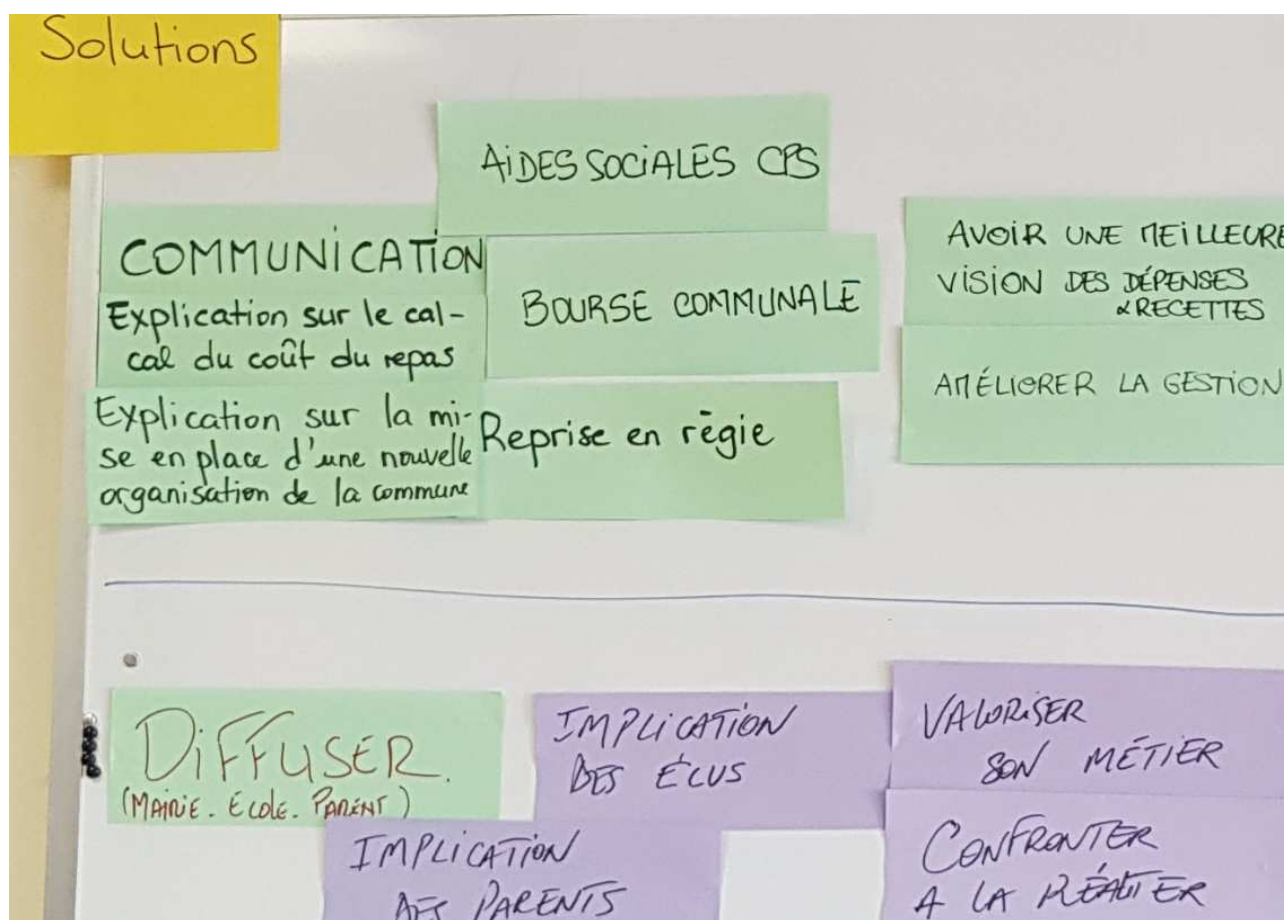 Solutions
AiDES SOCiALES CPS
COMMUNiCATiON
Explication sur le cal-
cal du coût du repas
Explication sur la mi-
se en place d'une nouvelle
organisation de la commune
BOURSE COMMUNALE
Reprise en règie
AVOiR UNE MEiLLEURE
VISION DES DÉPENSES
& RECETTES
AMÉLIORER LA GESTION
DiFFUSER.
(MAiRiE. ÉCole. PARENT)
IMPLiCATiON
DES ÉLUS
IMPLiCATiON
DES PARENTS
VALORiSER
SON MÉTIER
CONFRONTER
A LA RÉALITER